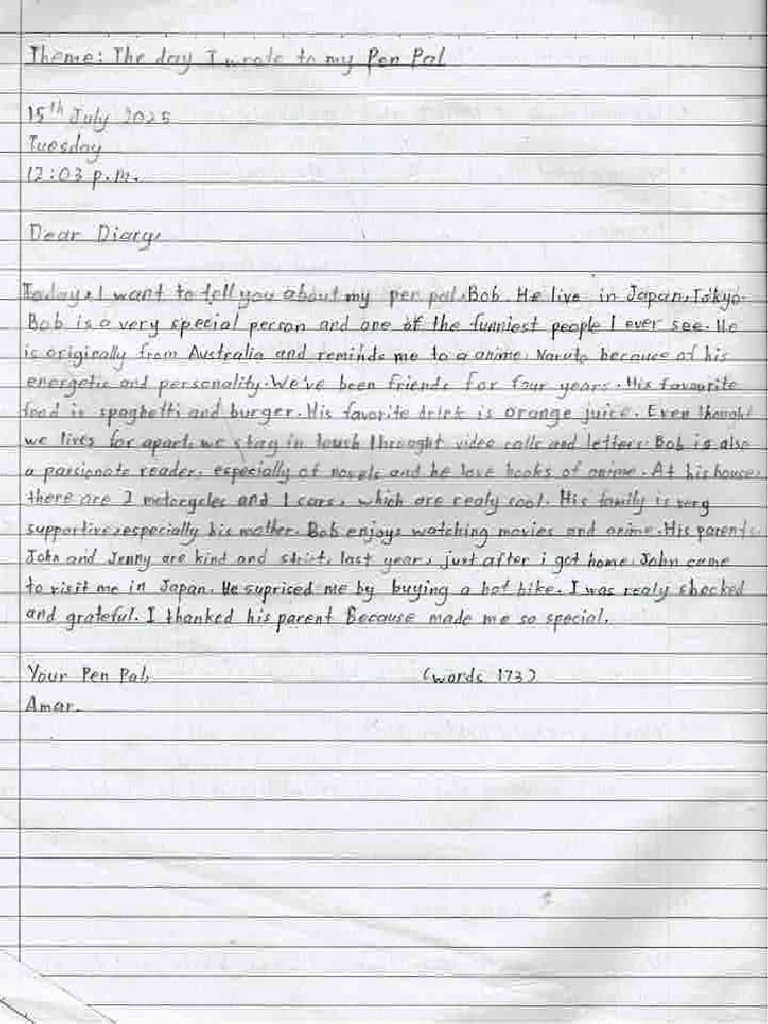 Theme: The day I wrote to my Pen Pal
15th July 2025
Tuesday
12:03 p.m.
Dear Diary,
Today, I want to tell you about my pen pal, Bob. He live in Japan, Tokyo.
Bob is a very special person and one of the funniest people I ever see. He
is originally from Australia and reminds me to a anime, Naruto because of his
energetic and personality. We've been friends for four years. His favourite
food is spaghetti and burger. His favorite drink is orange juice. Even thought
we lives far apart, we stay in touch throught video calls and letters. Bob is also
a passionate reader, especially of novels and he love books of anime. At his house,
there are 2 motorcycles and 1 cars, which are realy cool. His family is very
supportive, especially his mother. Bob enjoys watching movies and anime. His parent,
John and Jenny are kind and strict, last year, just after i got home, John came
to visit me in Japan. He suprised me by buying a hot bike. I was realy shocked
and grateful. I thanked his parent Because made me so special.
Your Pen Pal, (words 173)
Amar.